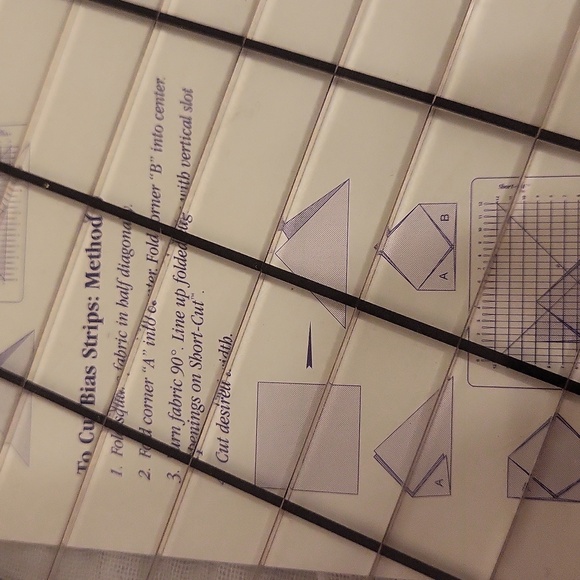 To Cut Bias Strips: Method
1. Fold square fabric in half diagonal
2. Fold corner "A" into center. Fold corner "B" into center.
3. Turn fabric 90°. Line up folded with vertical slot
openings on Short-Cut™.
Cut desired width.
A
B
A
Short-Cut